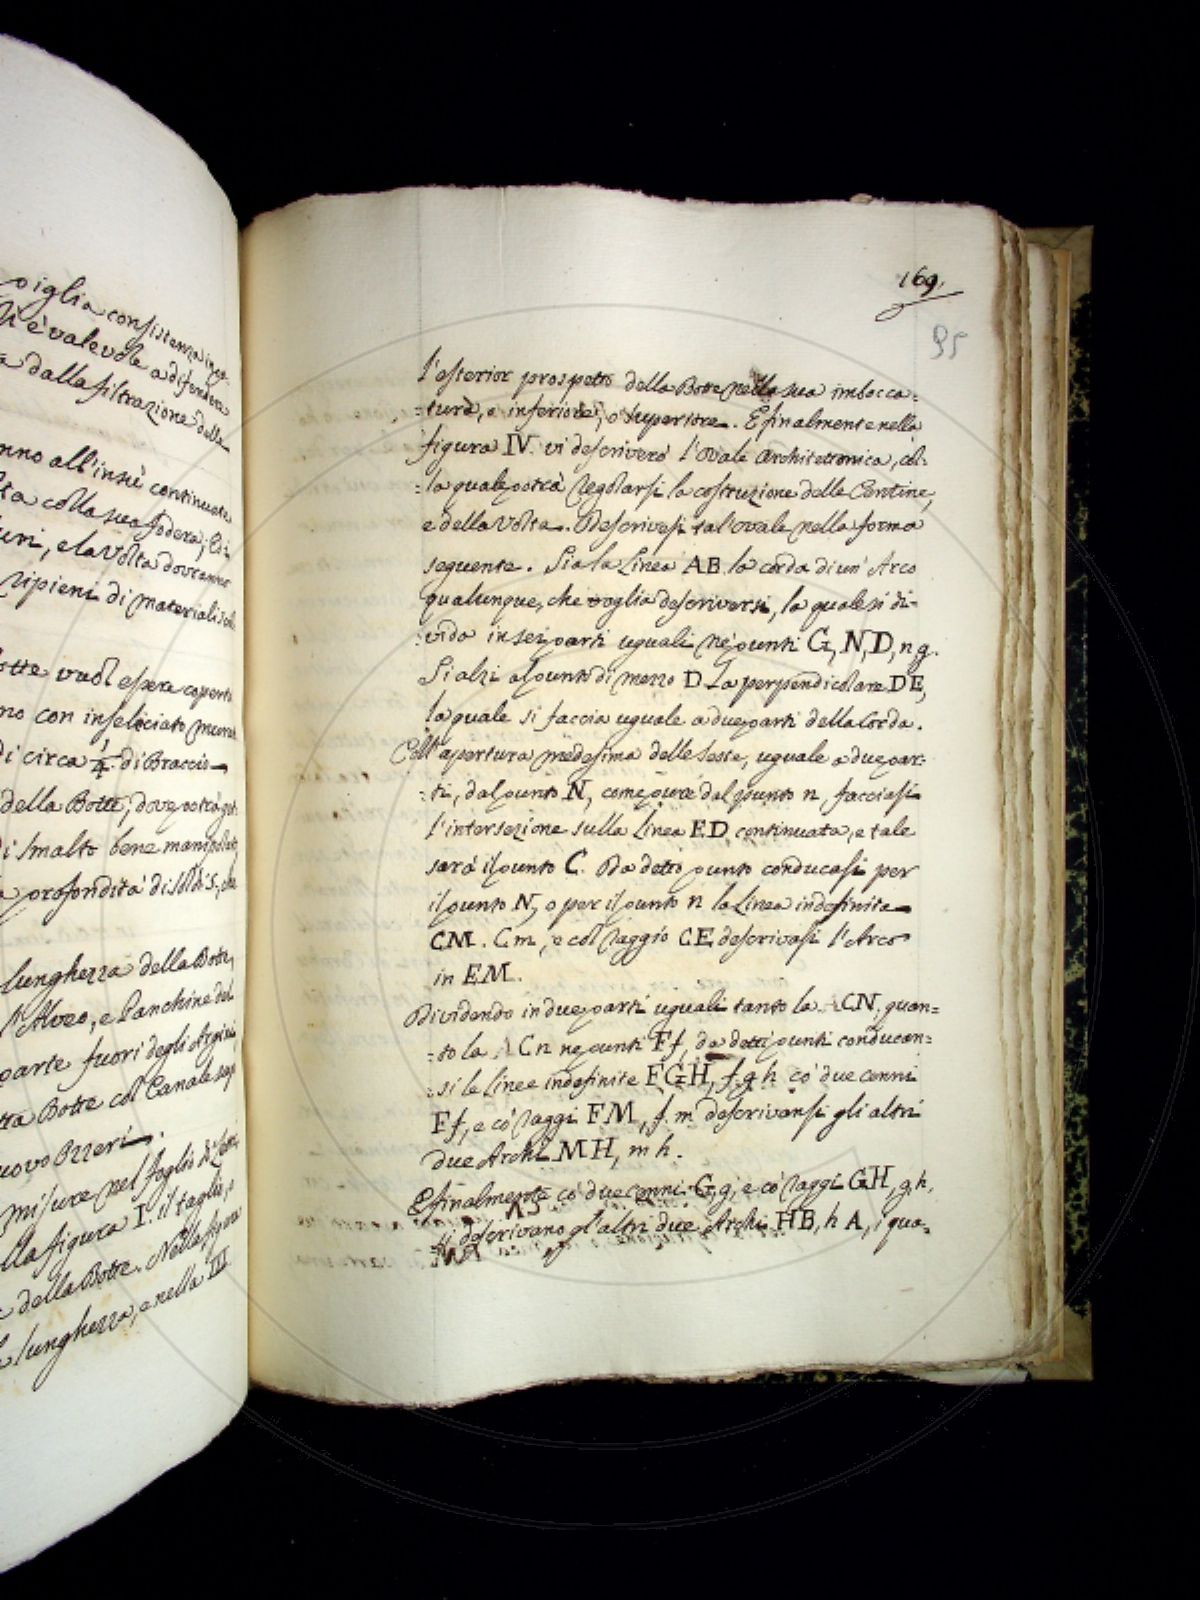 oiglia consistenza
è valevole a difendere
a dalla filtrazione delle
nno all'insù continuate
ta colla sua fodera; Ed i
uri, e la Volta dovranno
ripieni di materiali
otte vuol essere coperto
no con inseliciato
di circa 1/4 di Braccio
della Botte, dove potrà
di smalto bene manipolato
a profondità di soldi 5, che
lunghezza della Botte,
l'Alveo, e Panchine del
parte fuori degli Argini
tta Botte col Canale
uovo Ozzeri.
misure nel foglio di
lla figura I. il taglio, e
e della Botte. Nella figura
lunghezza, e nella III
169.
95
l'esterior prospetto della Botte nella sua imbocca=
=tura, o inferiore, o superiore. E finalmente nella
figura IV. vi descriverò l'Ovale Architettonica, col=
=la quale potrà regolarsi la costruzione delle Centine,
e della Volta. Descrivesi tal'ovale nella forma
seguente. Sia la Linea AB la corda di un' Arco
qualunque, che voglia descriversi, la quale si di=
=vida in sei parti uguali ne' punti G, N, D, n g.
Si alzi al punto di mezzo D la perpendicolare DE,
la quale si faccia uguale a due parti della Corda.
Coll'apertura medesima delle Seste, uguale a due par=
=ti, dal punto N, come pure dal punto n, facciasi
l'intersezione sulla Linea ED continuata, e tale
sarà il punto C. Da detto punto conducasi per
il punto N, o per il punto n la Linea indefinita
CM. Cm, e col raggio CE descrivasi l'Arco
in EM.
Dividendo in due parti uguali tanto la CN, quan=
=to la Cn ne punti Ff, da detti punti conducan=
=si le linee indefinite FGH, f.g h co' due cenni
Ff, e co' raggi FM, f. m descrivansi gli altri
due Archi MH, m h.
E finalmente co' due cenni G, g, e co' raggi GH, g h,
si descrivano gl'altri due Archi HB, h A, i qua=